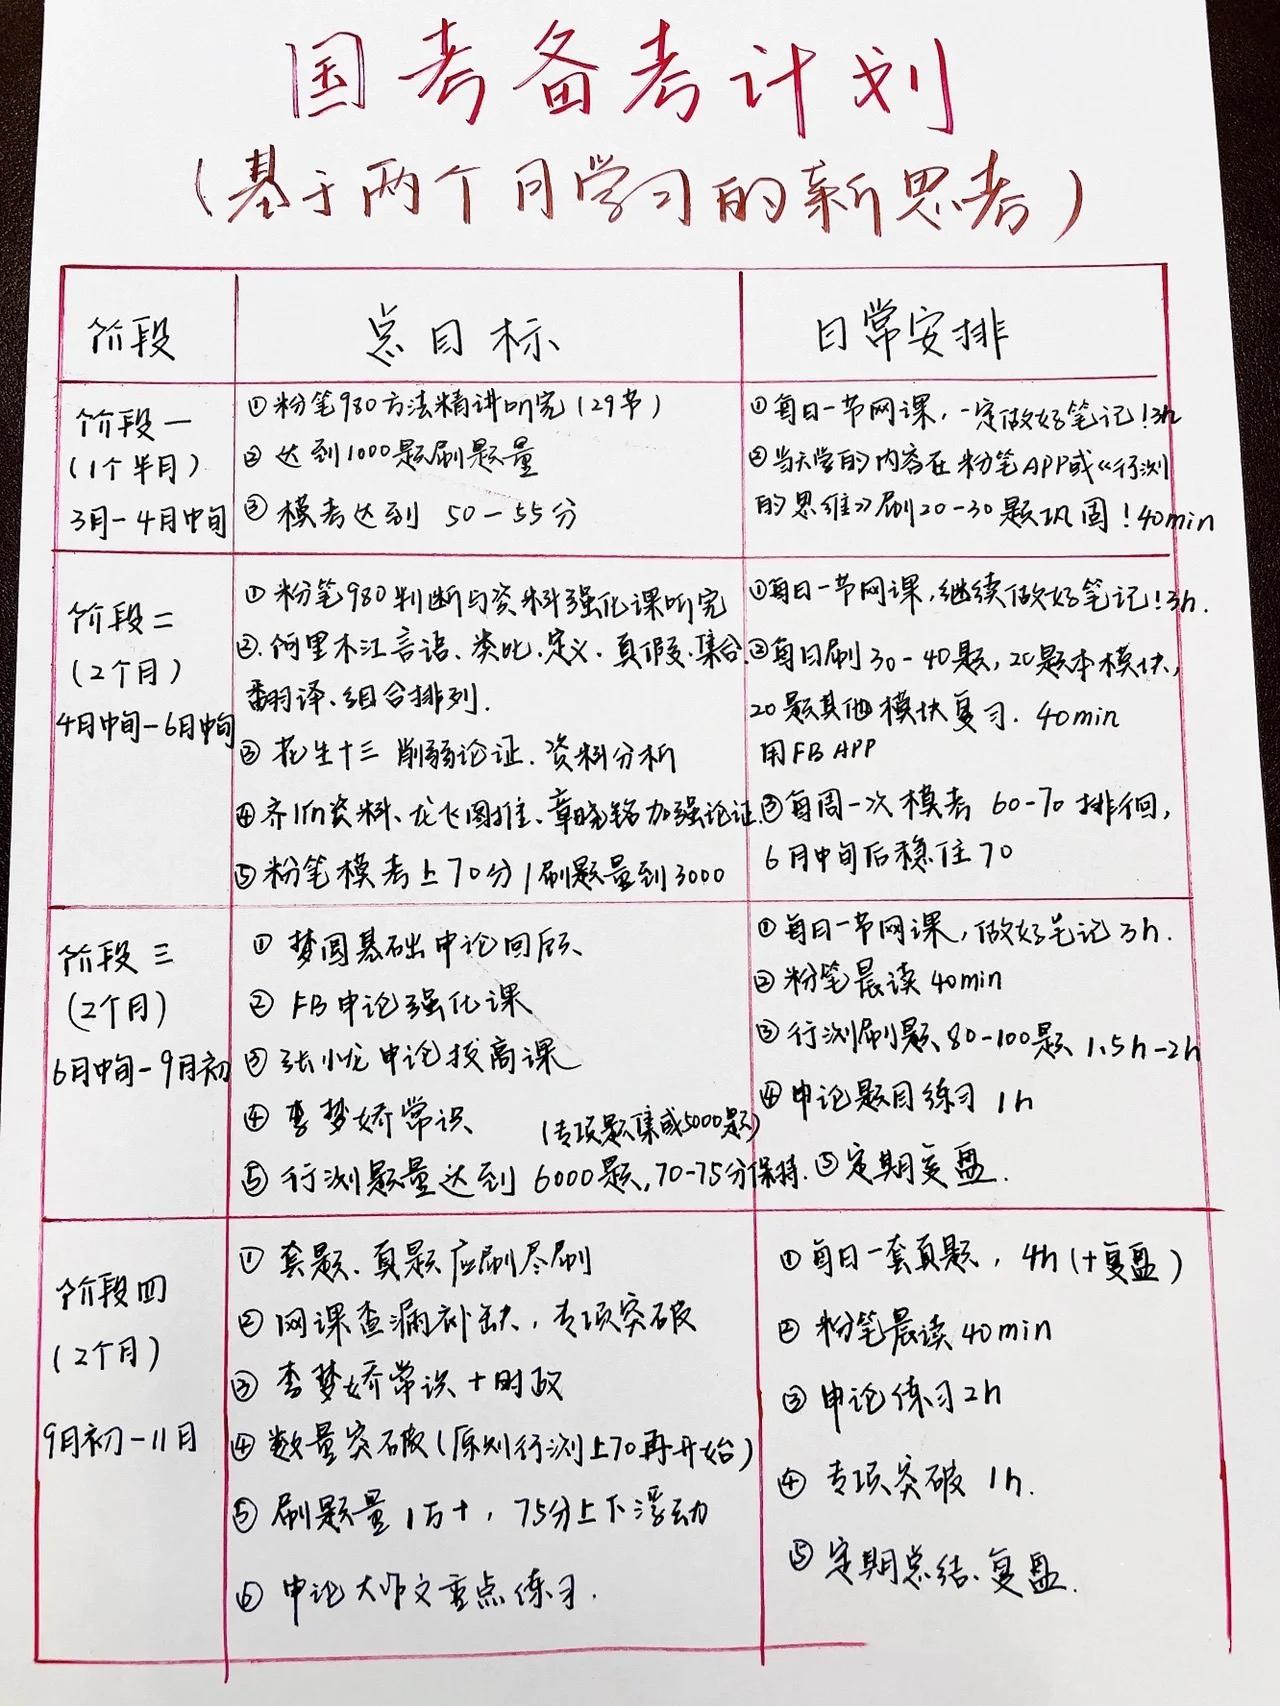 国考备考计划
(基于两个月学习的新思考)
阶段
总目标
日常安排
阶段一
(1个半月)
3月-4月中旬
①粉笔980方法精讲听完(29节)
②达到1000题刷题量
③模考达到 50-55分
①每日一节网课,一定做好笔记!3h
②当天学的内容在粉笔APP或《行测
的思维》刷20-30题巩固!40min
阶段二
(2个月)
4月中旬-6月中旬
①粉笔980判断与资料强化课听完
②.阿里木江言语、类比.定义.真假.集合.
翻译、组合排列.
③花生十三 削弱论证.资料分析
④齐麟资料、龙飞图推、章晓铭加强论证.
⑤粉笔模考上70分/刷题量到3000
①每日一节网课,继续做好笔记!3h.
②每日刷30-40题,20题本模块,
20题其他模块复习. 40min
用FB APP
③每周一次模考 60-70排徊,
6月中旬后稳住70
阶段三
(2个月)
6月中旬-9月初
①梦圆基础申论回顾
②FB申论强化课
③张小龙申论拔高课
④李梦娇常识 (专项题集或5000题)
⑤行测题量达到6000题,70-75分保持.
①每日一节网课,做好笔记 3h.
②粉笔晨读 40min
③行测刷题80-100题 1.5h-2h
④申论题目练习 1h
⑤定期复盘.
阶段四
(2个月)
9月初-11月
①套题、真题应刷尽刷
②网课查漏补缺,专项突破
③李梦娇常识+时政
④数量突破(原则行测上70再开始)
⑤刷题量1万+,75分上下浮动
⑥申论大作文重点练习.
①每日一套真题, 4h(+复盘)
②粉笔晨读40min
③申论练习2h
④专项突破 1h.
⑤定期总结、复盘.